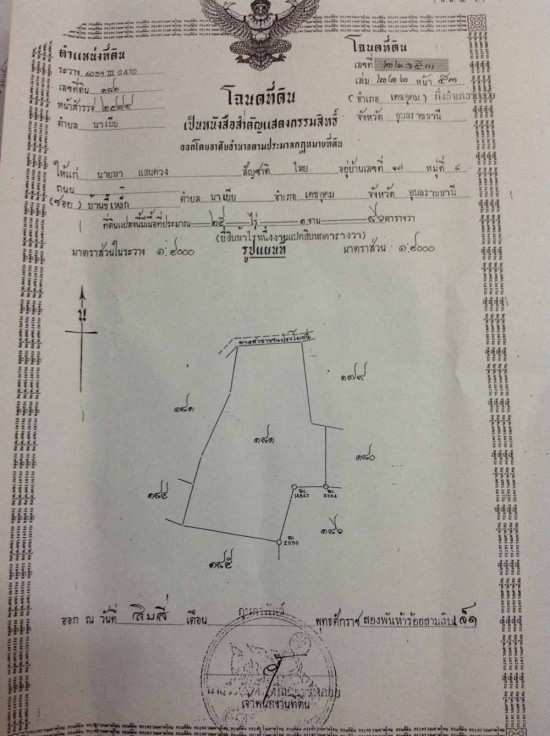 ตำแหน่งที่ดิน
ระวาง 6039 III 0470
เลขที่ดิน ๑๘๒
หน้าสำรวจ ๒๔๗๔
ตำบล นาเยีย
โฉนดที่ดิน
เลขที่ ๒๒๑๕๓
เล่ม ๒๒๒ หน้า ๕๓
(อำเภอ เดชอุดม) กิ่งอำเภอ
จังหวัด อุบลราชธานี
โฉนดที่ดิน
เป็นหนังสือสำคัญแสดงกรรมสิทธิ์
ออกโดยอาศัยอำนาจตามประมวลกฎหมายที่ดิน
ให้แก่ นายทา แสนดวง สัญชาติ ไทย อยู่บ้านเลขที่ ๑๗ หมู่ที่ ๘
ถนน
(ซอย) บ้านขี้เหล็ก ตำบล นาเยีย อำเภอ เดชอุดม จังหวัด อุบลราชธานี
ที่ดินแปลงนี้มีเนื้อที่ประมาณ ๒๕ ไร่ ๑ งาน ๘๖ ตารางวา
(ยี่สิบห้าไร่หนึ่งงานแปดสิบหกตารางวา)
มาตราส่วนในระวาง ๑:๔๐๐๐ รูปแผนที่ มาตราส่วน ๑:๔๐๐๐
น
ทางสาธารณประโยชน์
๑๗๙
๑๘๓
๑๘๐
๑๘๔
๑๘๖
๑๘๕
ออก ณ วันที่ สิบสี่ เดือน กุมภาพันธ์ พุทธศักราช สองพันห้าร้อยสามสิบเอ็ด
เจ้าพนักงานที่ดิน